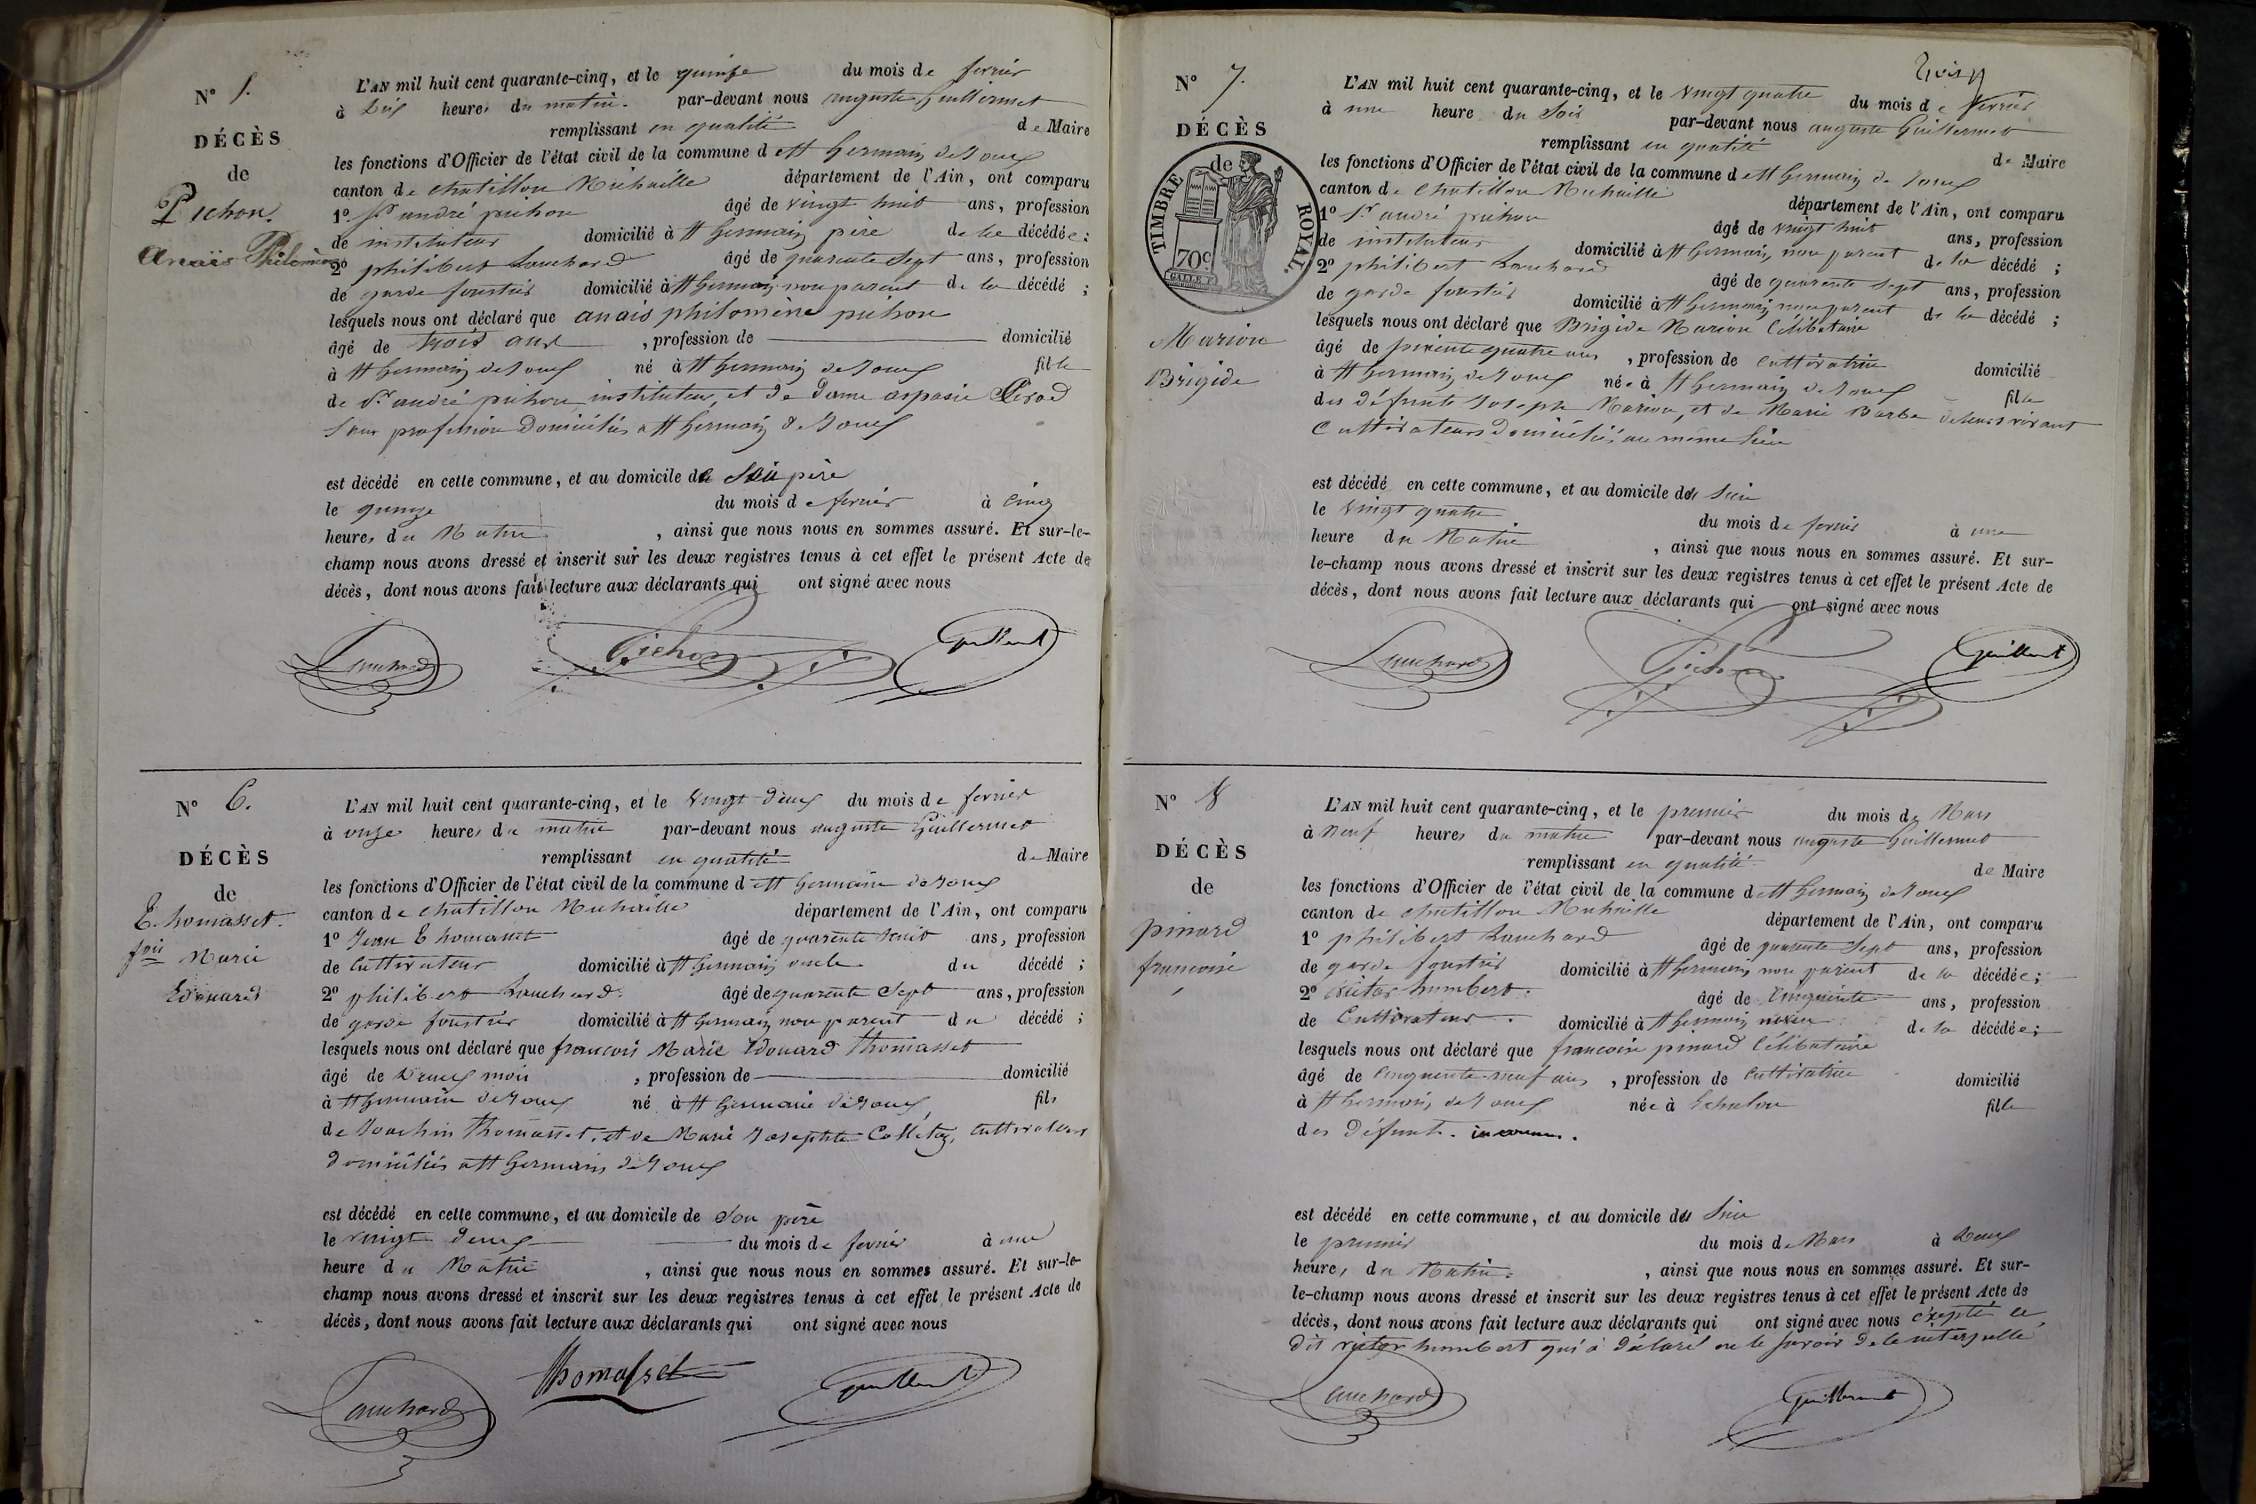 N° 5.
DÉCÈS
de
Pichon
Anaïs Philomène
L'AN mil huit cent quarante-cinq, et le quinze du mois de fevrier
à dix heures du matin. par-devant nous auguste Guillermet
remplissant en qualité de Maire
les fonctions d'Officier de l'état civil de la commune d e St Germain de Joux
canton de chatillon Michaille département de l'Ain, ont comparu
1° Sr andré pichon âgé de vingt huit ans, profession
de instituteur domicilié à St Germain père de la décédée;
2° philibert Louchard âgé de quarante sept ans, profession
de garde forestier domicilié à St Germain non parent de la décédé ;
lesquels nous ont déclaré que anais philomène pichon
âgé de trois ans , profession de domicilié
à St Germain de Joux né à St Germain de Joux fille
de Sr andré pichon, instituteur, et de Dame aspasie
Sans profession Domiciliés a St Germain de Joux
est décédé en cette commune, et au domicile de Son père
le quinze du mois de fevrier à cinq
heures du Matin , ainsi que nous nous en sommes assuré. Et sur-le-
champ nous avons dressé et inscrit sur les deux registres tenus à cet effet le présent Acte de
décès, dont nous avons fait lecture aux déclarants qui ont signé avec nous
Louchard Pichon Guillermet
N° 6.
DÉCÈS
de
Thomasset.
fois Marie
Edouard
L'AN mil huit cent quarante-cinq, et le vingt deux du mois de fevrier
à onze heures du matin par-devant nous auguste Guillermet
remplissant en qualité de Maire
les fonctions d'Officier de l'état civil de la commune d e St Germain de Joux
canton de chatillon Michaille département de l'Ain, ont comparu
1° Jean Thomasset âgé de quarante huit ans, profession
de Cultivateur domicilié à St Germain oncle du décédé ;
2° philibert Louchard. âgé de quarante Sept ans, profession
de garde forestier domicilié à St Germain non parent du décédé ;
lesquels nous ont déclaré que francois Marie Edouard Thomasset
âgé de Deux mois , profession de domicilié
à St Germain de Joux né à St Germain de Joux, fils
de Joachin Thomasset, et de Marie Josephte Colletaz, Cultivateurs
Domiciliés a St Germain de Joux
est décédé en cette commune, et au domicile de Son père
le vingt deux du mois de fevrier à une
heure du Matin , ainsi que nous nous en sommes assuré. Et sur-le-
champ nous avons dressé et inscrit sur les deux registres tenus à cet effet le présent Acte de
décès, dont nous avons fait lecture aux déclarants qui ont signé avec nous
Louchard Thomasset Guillermet
Trois
N° 7.
DÉCÈS
de
TIMBRE ROYAL.
70c
Marion
Brigide
L'AN mil huit cent quarante-cinq, et le vingt quatre du mois de fevrier
à une heure du Soir par-devant nous auguste Guillermet
remplissant en qualité de Maire
les fonctions d'Officier de l'état civil de la commune d e St Germain de Joux
canton de Chatillon Michaille département de l'Ain, ont comparu
1° Sr andré pichon âgé de vingt huit ans, profession
de instituteur domicilié à St Germain non parent de la décédé ;
2° philibert Louchard âgé de quarante sept ans, profession
de garde forestier domicilié à St Germain non parent de la décédé ;
lesquels nous ont déclaré que Brigide Marion Célibataire
âgé de quatre ans , profession de cultivatrice domicilié
à St Germain de Joux née à St Germain de Joux fille
des défunts Joseph Marion, et de Marie Barbe de leurs vivant
Cultivateurs Domiciliés au même lieu
est décédé en cette commune, et au domicile du Sien
le vingt quatre du mois de fevrier à une
heure du Matin , ainsi que nous nous en sommes assuré. Et sur-
le-champ nous avons dressé et inscrit sur les deux registres tenus à cet effet le présent Acte de
décès, dont nous avons fait lecture aux déclarants qui ont signé avec nous
Louchard Pichon Guillermet
N° 8
DÉCÈS
de
pinard
francoise
L'AN mil huit cent quarante-cinq, et le premier du mois de Mars
à Neuf heures du matin par-devant nous auguste Guillermet
remplissant en qualité de Maire
les fonctions d'Officier de l'état civil de la commune d e St Germain de Joux
canton de chatillon Michaille département de l'Ain, ont comparu
1° philibert Louchard âgé de quarante Sept ans, profession
de garde forestier domicilié à St Germain non parent de la décédée;
2° victor humbert. âgé de Cinquante ans, profession
de Cultivateur. domicilié à St Germain neveu de la décédée;
lesquels nous ont déclaré que francoise pinard Célibataire
âgé de Cinquante-neuf ans , profession de Cultivatrice domicilié
à St Germain de Joux née à Echalon fille
des Défunts. inconnus.
est décédé en cette commune, et au domicile du Sien
le premier du mois de Mars à Deux
heures du Matin. , ainsi que nous nous en sommes assuré. Et sur-
le-champ nous avons dressé et inscrit sur les deux registres tenus à cet effet le présent Acte de
décès, dont nous avons fait lecture aux déclarants qui ont signé avec nous excepté le
dit victor humbert qui a déclaré ne le savoir de le interpellé
Louchard Guillermet